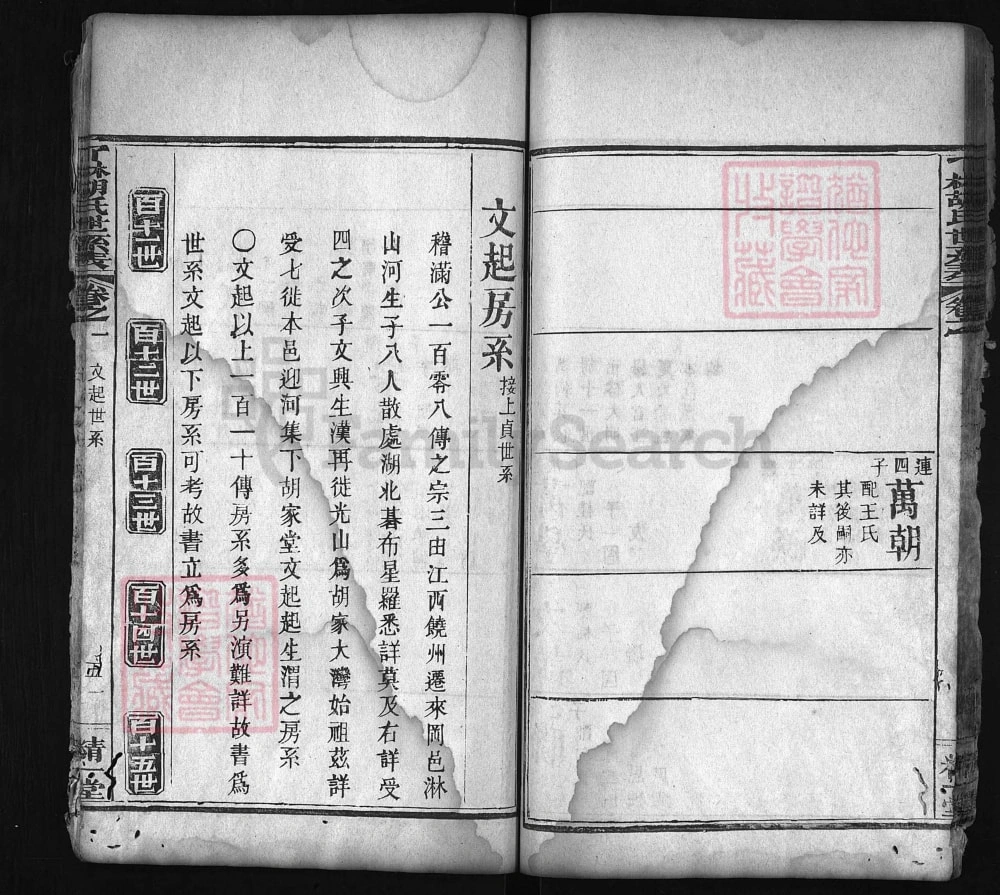 連四子
萬朝
配王氏
其後嗣亦
未詳及
文起房系 接上貞世系
稽滿公一百零八傳之宗三由江西饒州遷來岡邑淋
山河生子八人散處湖北碁布星羅悉詳莫及右詳受
四之次子文興生漢再徙光山爲胡家大灣始祖茲詳
受七徙本邑迎河集下胡家堂文起起生渭之房系
〇文起以上一百一十傳房系多爲另演難詳故書爲
世系文起以下房系可考故書立爲房系
百十一世
百十二世
百十三世
百十四世
百十五世
胡氏世系
卷之一
文起世系
堂
FamilySearch